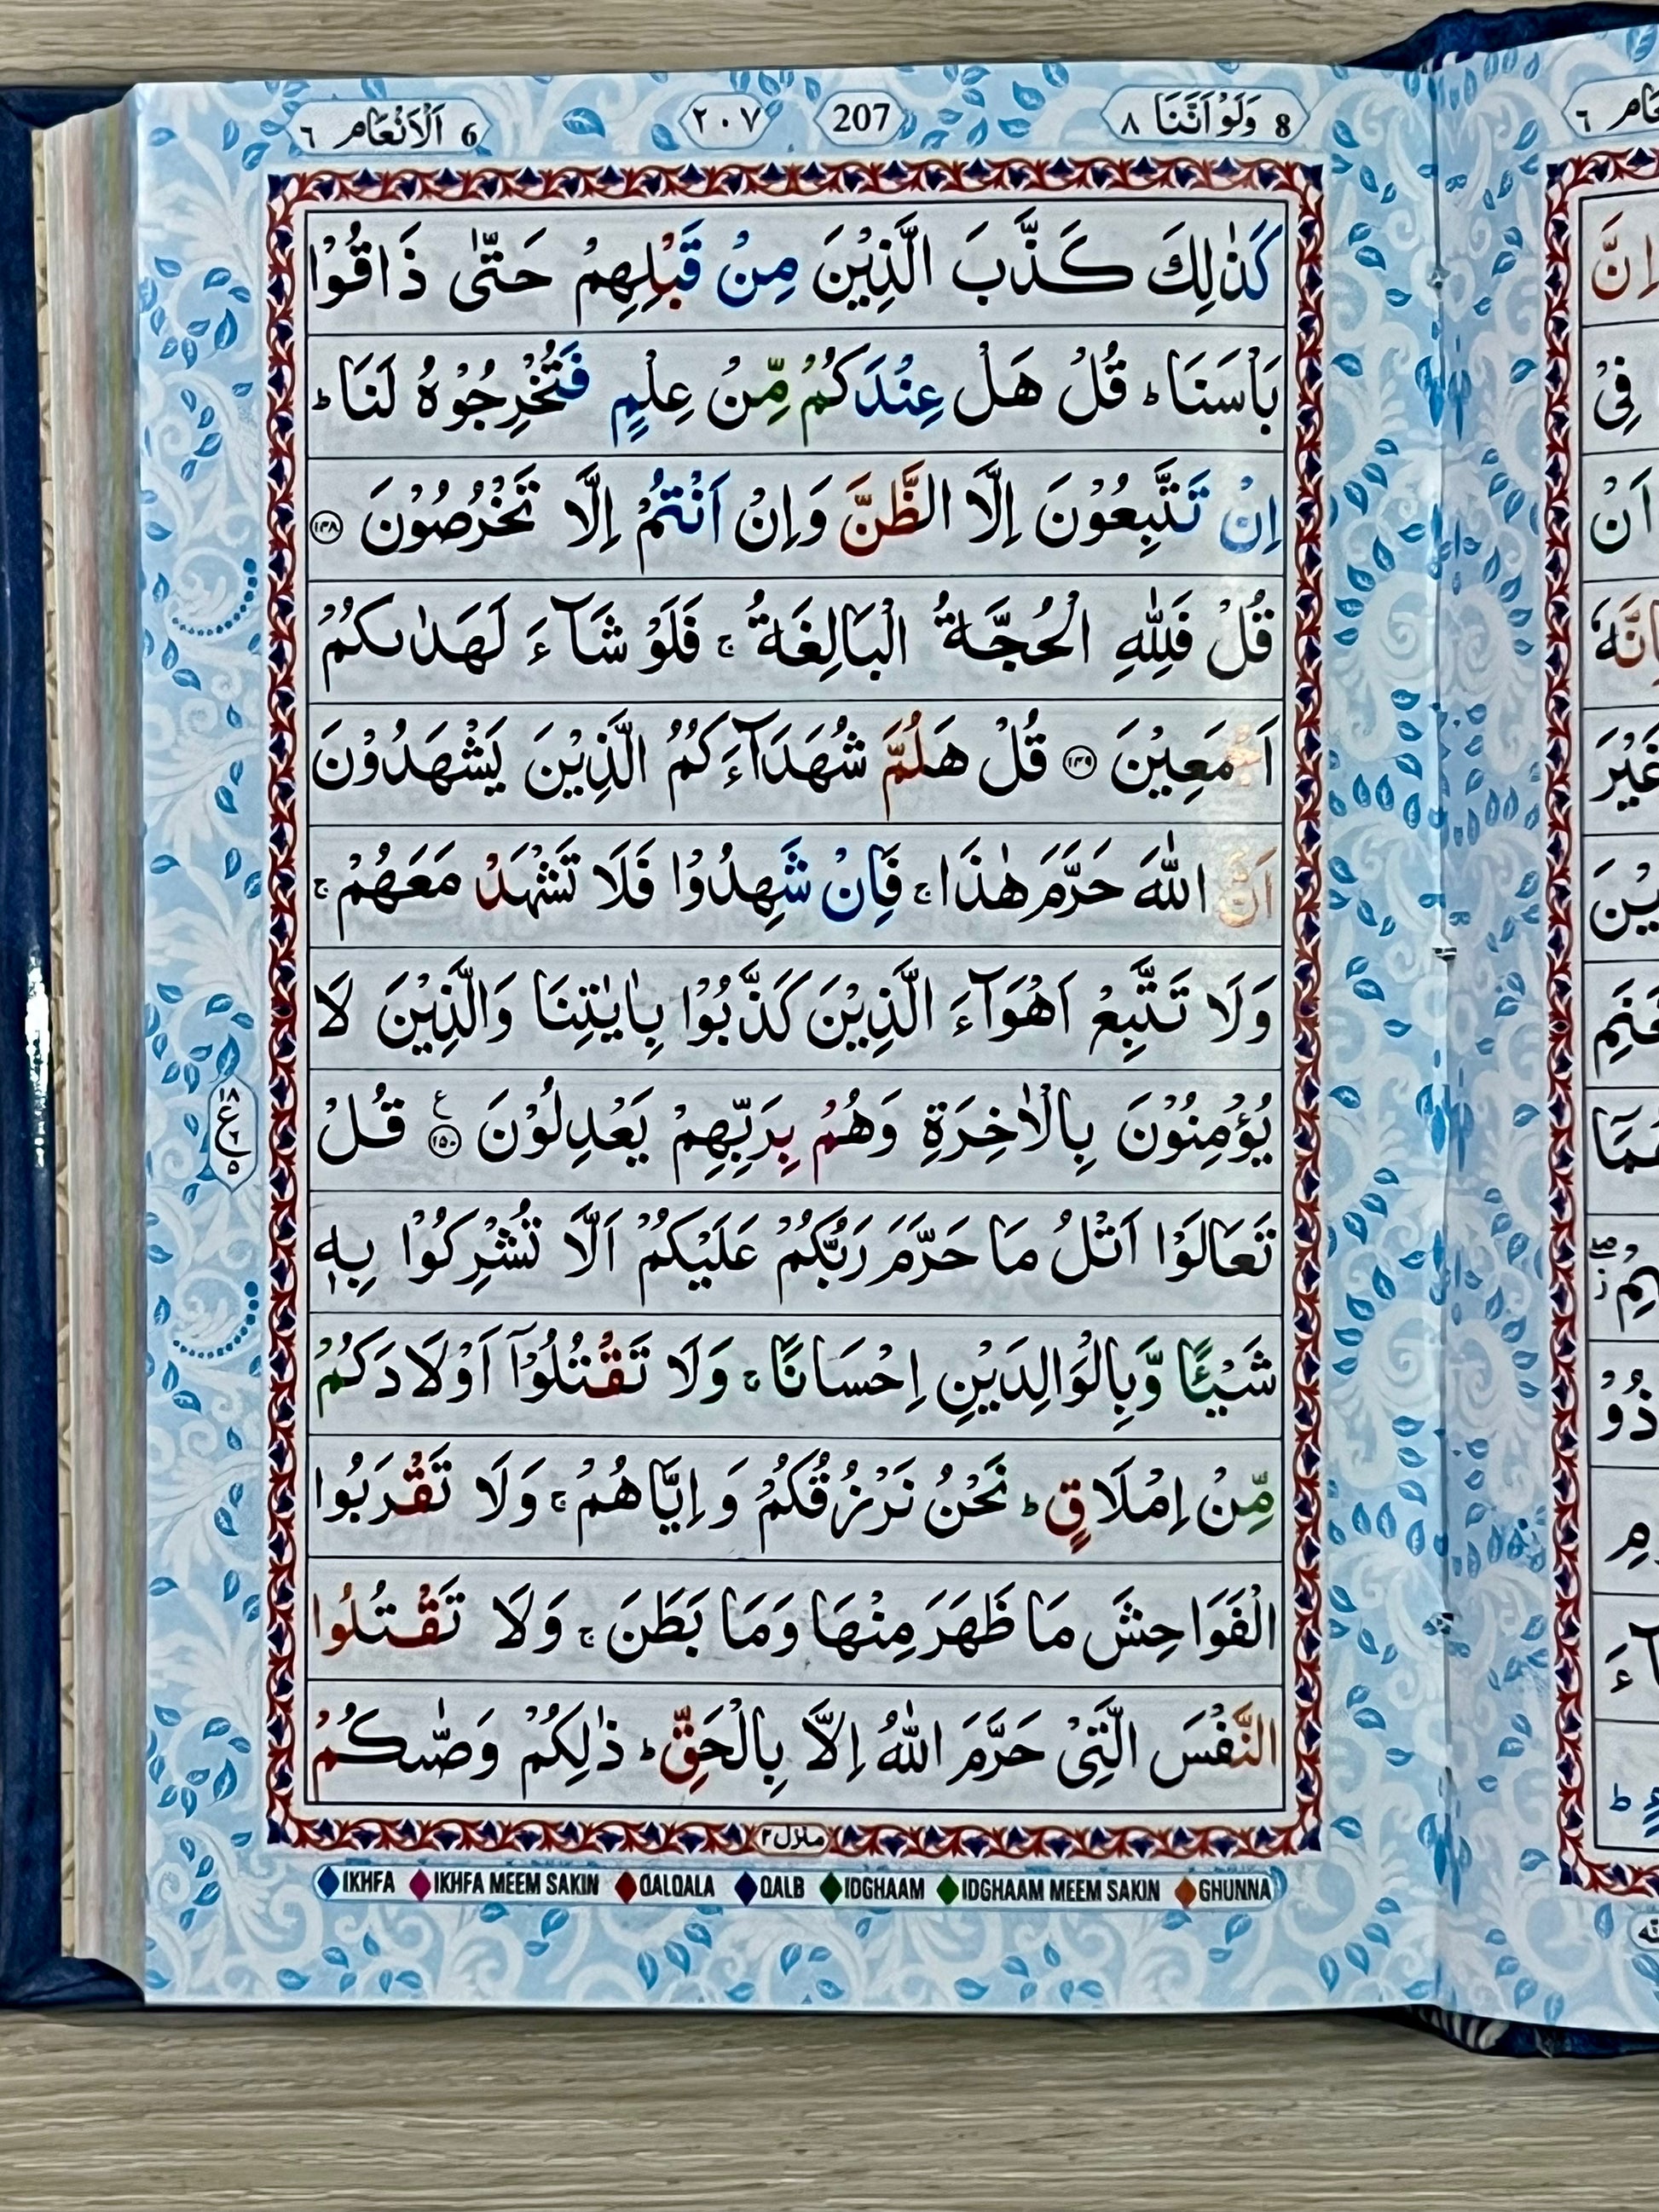 8 وَلَوْ اَنَّنَا ٨ 207 ٢٠٧ 6 اَلْاَنْعَام ٦
كَذٰلِكَ كَذَّبَ الَّذِيْنَ مِنْ قَبْلِهِمْ حَتّٰى ذَاقُوْا
بَاْسَنَا ؕ قُلْ هَلْ عِنْدَكُمْ مِّنْ عِلْمٍ فَتُخْرِجُوْهُ لَنَا ؕ
اِنْ تَتَّبِعُوْنَ اِلَّا الظَّنَّ وَاِنْ اَنْتُمْ اِلَّا تَخْرُصُوْنَ ۝۱۴۸
قُلْ فَلِلّٰهِ الْحُجَّةُ الْبَالِغَةُ ۚ فَلَوْ شَآءَ لَهَدٰىكُمْ
اَجْمَعِيْنَ ۝۱۴۹ قُلْ هَلُمَّ شُهَدَآءَكُمُ الَّذِيْنَ يَشْهَدُوْنَ
اَنَّ اللّٰهَ حَرَّمَ هٰذَا ۚ فَاِنْ شَهِدُوْا فَلَا تَشْهَدْ مَعَهُمْ ۚ
وَلَا تَتَّبِعْ اَهْوَآءَ الَّذِيْنَ كَذَّبُوْا بِاٰيٰتِنَا وَالَّذِيْنَ لَا
يُؤْمِنُوْنَ بِالْاٰخِرَةِ وَهُمْ بِرَبِّهِمْ يَعْدِلُوْنَ ۝۱۵۰ ع قُلْ
١٨ ع ٦ ٥
تَعَالَوْا اَتْلُ مَا حَرَّمَ رَبُّكُمْ عَلَيْكُمْ اَلَّا تُشْرِكُوْا بِهٖ
شَيْـًٔا وَّبِالْوَالِدَيْنِ اِحْسَانًا ۚ وَلَا تَقْتُلُوْٓا اَوْلَادَكُمْ
مِّنْ اِمْلَاقٍ ؕ نَحْنُ نَرْزُقُكُمْ وَاِيَّاهُمْ ۚ وَلَا تَقْرَبُوا
الْفَوَاحِشَ مَا ظَهَرَ مِنْهَا وَمَا بَطَنَ ۚ وَلَا تَقْتُلُوا
النَّفْسَ الَّتِيْ حَرَّمَ اللّٰهُ اِلَّا بِالْحَقِّ ؕ ذٰلِكُمْ وَصّٰىكُمْ
منزل ٢
IKHFA IKHFA MEEM SAKIN QALQALA QALB IDGHAAM IDGHAAM MEEM SAKIN GHUNNA